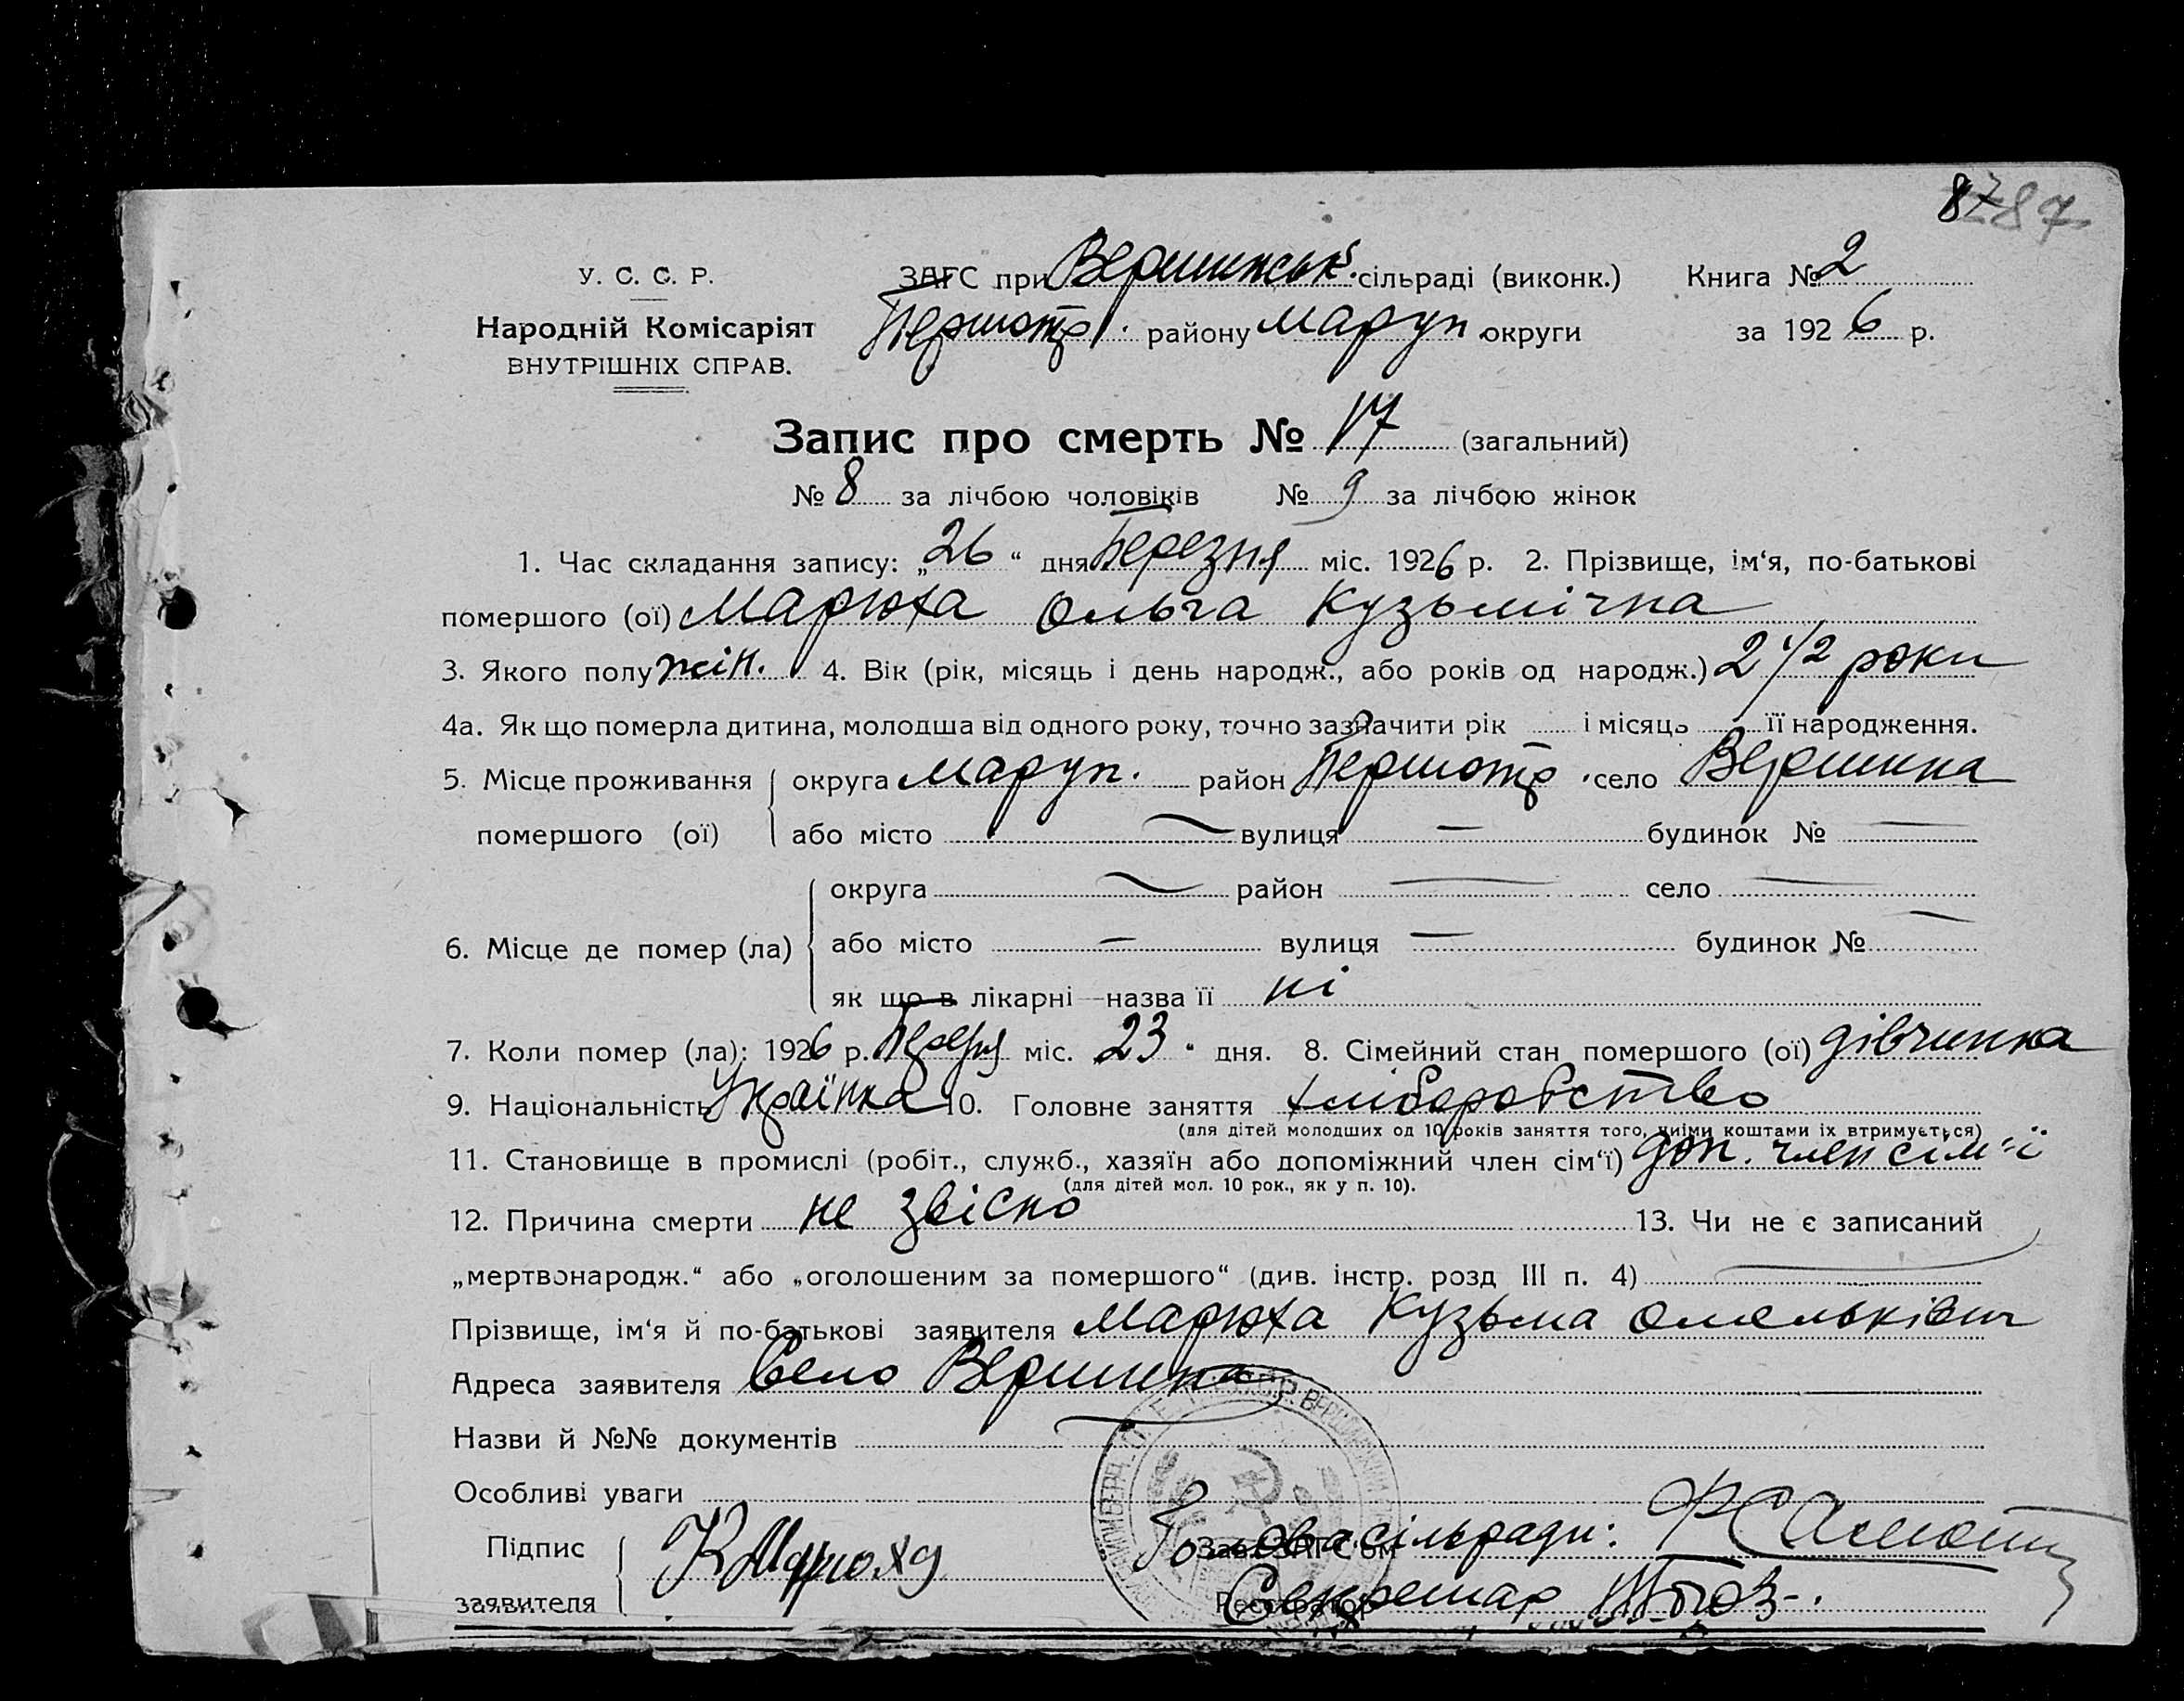 87 87
У. С. С. Р.
Народній Комісаріят
ВНУТРІШНІХ СПРАВ.
ЗАГС при Вершинськ. сільраді (виконк.) Книга № 2
Першотр. району Маруп. округи за 1926 р.
Запис про смерть № 17 (загальний)
№ 8 за лічбою чоловіків № 9 за лічбою жінок
1. Час складання запису: „26“ дня Березня міс. 1926 р. 2. Прізвище, ім‘я, по-батькові
помершого (ої) Марюха Ольга Кузьмічна
3. Якого полу жін. 4. Вік (рік, місяць і день народж., або років од народж.) 2 1/2 роки
4а. Як що померла дитина, молодша від одного року, точно зазначити рік і місяць її народження.
5. Місце проживання округа Маруп. район Першотр. село Вершина
помершого (ої) або місто — вулиця — будинок № —
округа — район — село —
6. Місце де помер (ла) або місто — вулиця — будинок № —
як що в лікарні—назва її ні
7. Коли помер (ла): 1926 р. Березня міс. 23 “ дня. 8. Сімейний стан помершого (ої) дівчинка
9. Національність Українка 10. Головне заняття хліборобство
(для дітей молодших од 10 років заняття того, чиїми коштами їх втримується)
11. Становище в промислі (робіт., служб., хазяїн або допоміжний член сім‘ї) доп. член сім"ї
(для дітей мол. 10 рок., як у п. 10).
12. Причина смерти не звісно 13. Чи не є записаний
„мертвонародж.“ або „оголошеним за помершого“ (див. інстр. розд III п. 4) —
Прізвище, ім‘я й по-батькові заявителя Марюха Кузьма Омельківич
Адреса заявителя Село Вершина
Назви й №№ документів
Особливі уваги
Підпис К Марюха Зав. ЗАГС‘ом Голова сільради:
заявителя Реєстратор Секретар